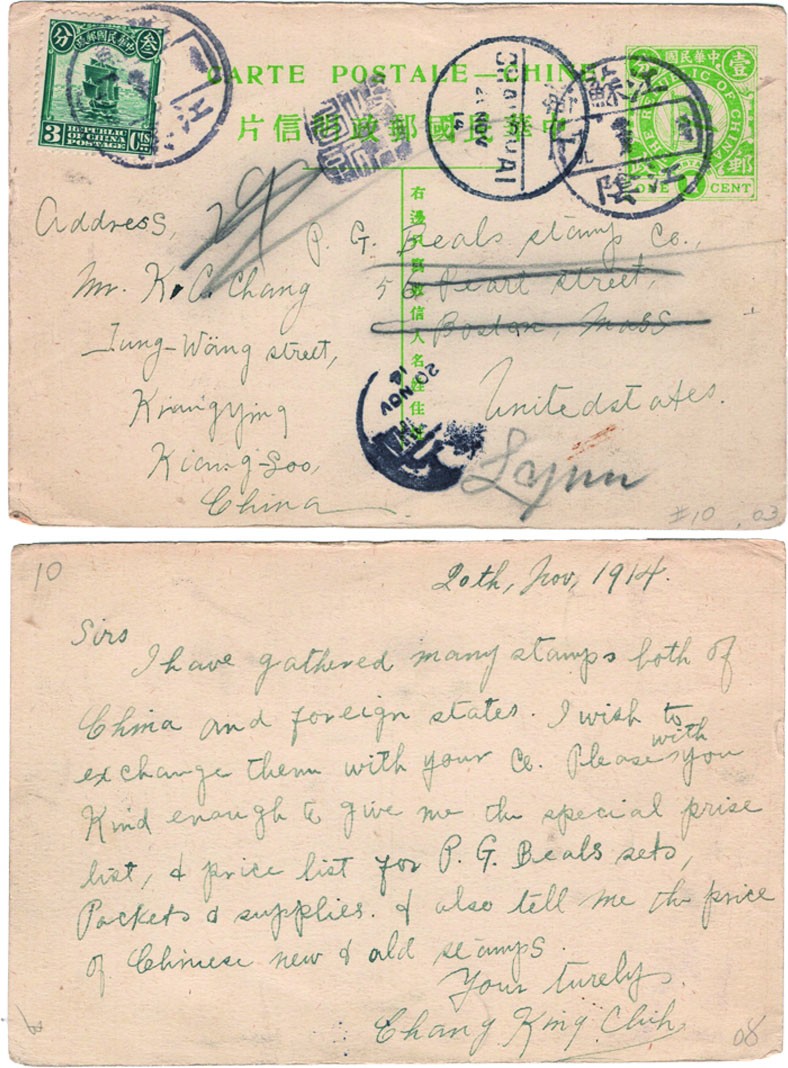 中華民國郵政
分 叁
3 CTS
REPUBLIC
OF CHINA
POSTAGE
江
CARTE POSTALE—CHINE
中華民國郵政明信片
SHANGHAI
21 NOV
14
江蘇
江陰
中華民國
壹
郵
THE REPUBLIC OF CHINA
ONE CENT
右邊只寫收信人名姓住址
Address,
Mr. K. C. Chang
Tung-Wang street,
Kiangying
Kiang-Soo,
China
P. G. Beals stamp Co.,
56 Pearl street,
Boston, Mass
United states.
20 NOV
14
Lynn
#10 .03
10
20th, Nov, 1914.
Sirs
I have gathered many stamps both of
China and foreign states. I wish to
exchange them with your Co. Please with you
Kind enough to give me the special prise
list, & price list for P. G. Beals sets,
Packets & supplies. & also tell me the price
of Chinese new & old stamps.
Your turely
Chang King Chih
08